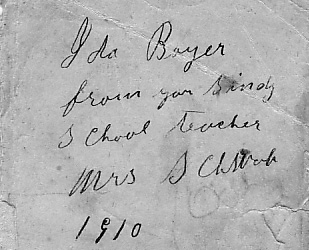 Ida Boyer
from your Sindy
School teacher
Mrs Schwab
1910